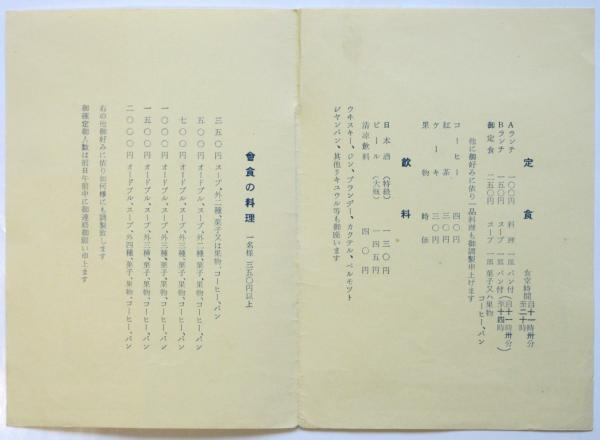 定食
食堂時間 自十一時卅分 至二十時
Aランチ 一〇〇円 料理 一皿 パン付
Bランチ 一五〇円 スープ 一皿 パン付(自十一時卅分 至十四時)
御定食 二五〇円 スープ 二皿 菓子又ハ果物 コーヒー、パン
他に御好みに依り一品料理も御調製申上げます
コーヒー 四〇円
紅茶 三〇円
ケーキ 三〇円
果物 時価
飲料
日本酒(特級) 一三〇円
ビール(大瓶) 一四五円
清涼飲料 四〇円
ウヰスキー、ジン、ブランデー、カクテル、ベルモット
シャンパン、其他リキュウル等も御座います
會食の料理 一名様 三五〇円以上
三五〇円 スープ、外二種、菓子又は果物、コーヒー、パン
五〇〇円 オードブル、スープ、外二種、菓子、果物、コーヒー、パン
七〇〇円 オードブル、スープ、外二種、菓子、果物、コーヒー、パン
一〇〇〇円 オードブル、スープ、外三種、菓子、果物、コーヒー、パン
一五〇〇円 オードブル、スープ、外三種、菓子、果物、コーヒー、パン
二〇〇〇円 オードブル、スープ、外四種、菓子、果物、コーヒー、パン
右の他御好みに依り如何様にも調製致します
御確定御人数は前日午前中に御連絡御願い申上ます